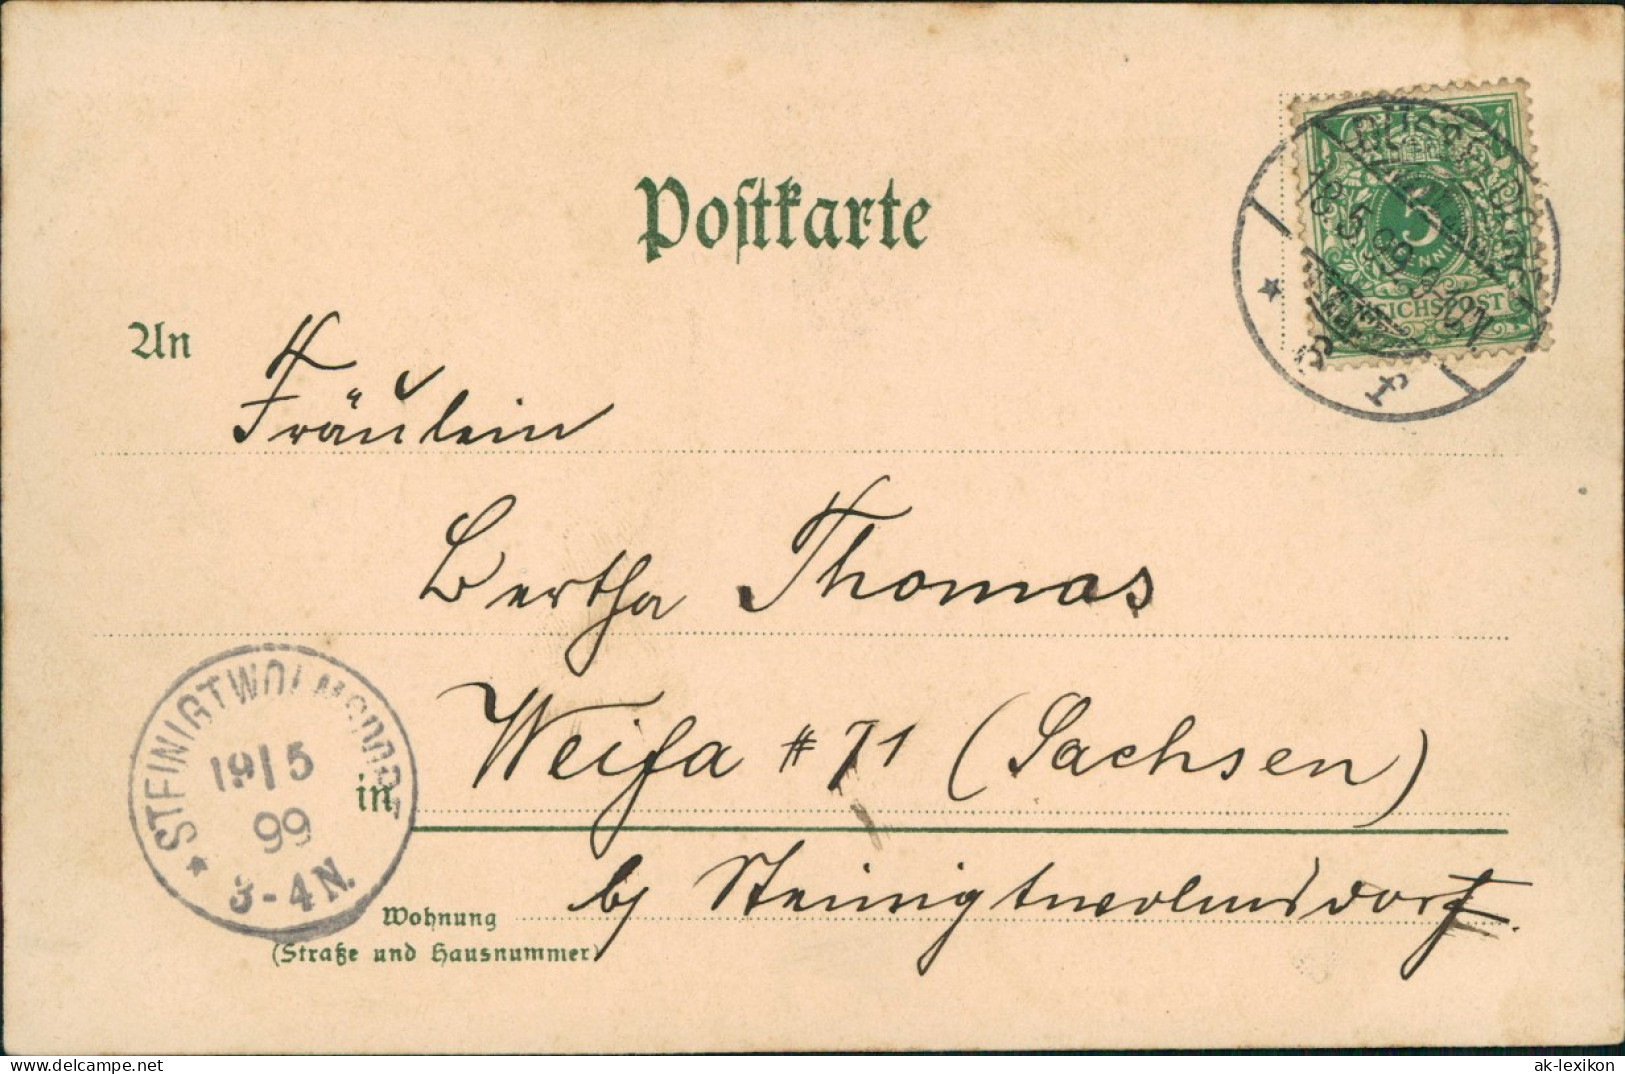 Postkarte
DÜSSELDORF
18.5.99.9-10N.
5 PFENNIG
REICHSPOST
1 r
An
Fräulein
Bertha Thomas
in Weifa # 71 (Sachsen)
Wohnung
(Straße und Hausnummer)
b/ Steinigtwolmsdorf.
STEINIGTWOLMSDORF
19/5
99
3-4N.
delcampe.net
ak-lexikon